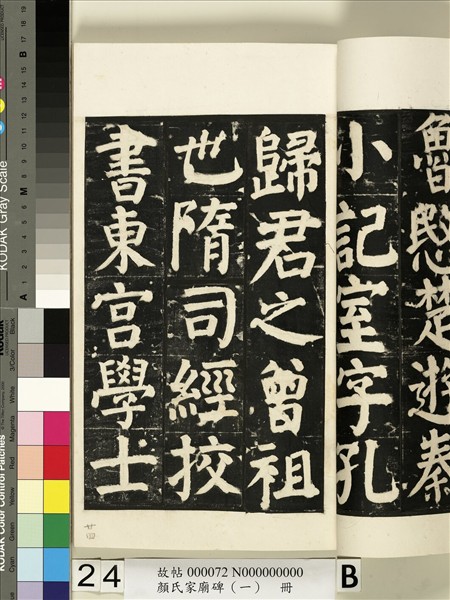 魯愍楚遊秦
小記室字孔
歸君之曾祖
世隋司經挍
書東宮學士
廿四
24
故帖 000072 N000000000
顏氏家廟碑（一） 冊
B
KODAK Gray Scale
A 1 2 3 4 5 6 M 8 9 10 11 12 13 14 15 B 17 18 19
KODAK Color Control Patches
Cyan
Green
Yellow
Red
Magenta
White
3/Color
Black